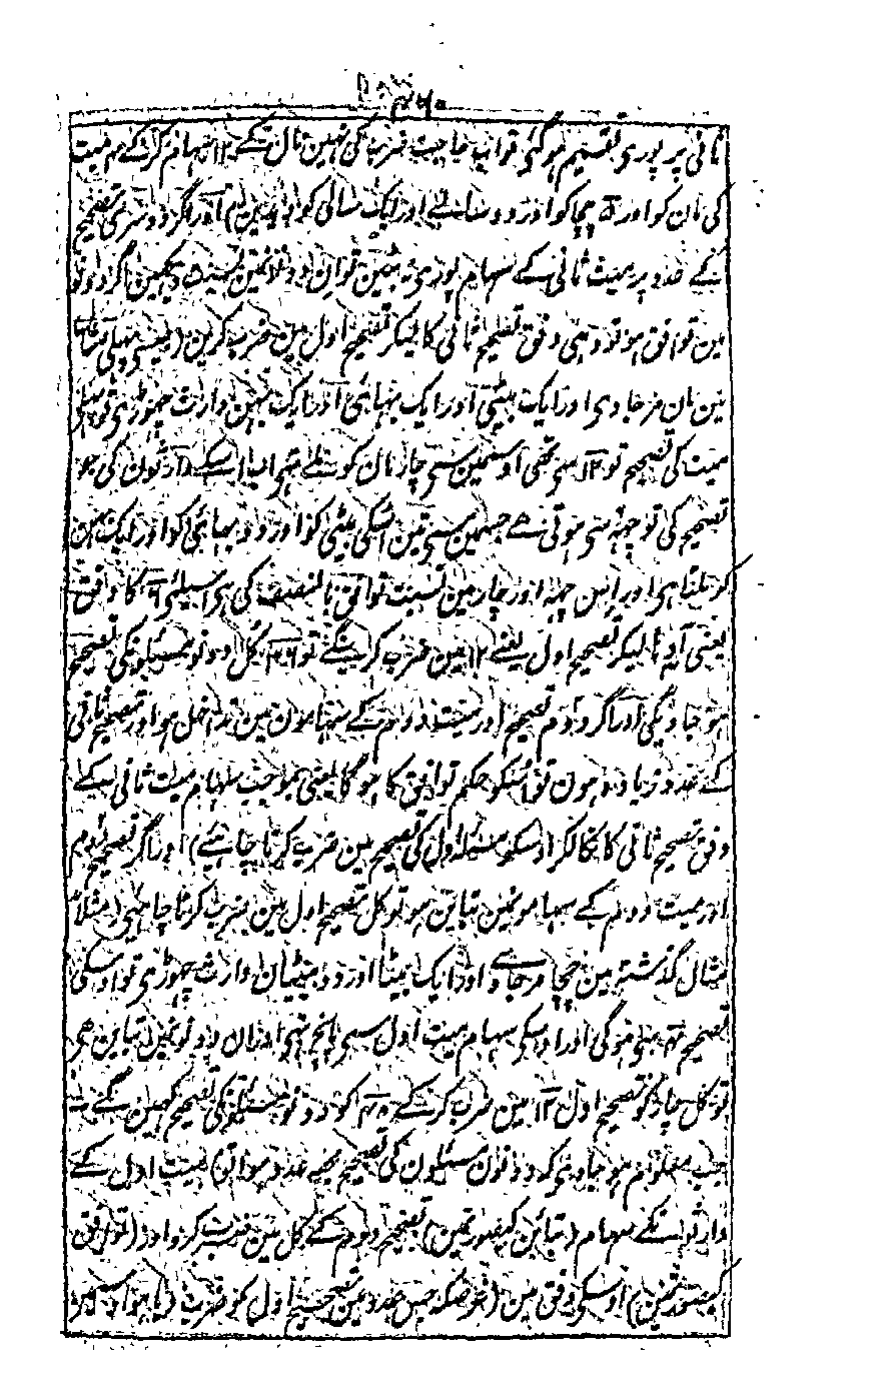 ثانی پر پوری تقسیم ہوگئی تو اب حاجت ضرب کی نہین تال کے ۱۲ سہام کرکے ۳ میت
کی مان کو اور ۵ چچا کو اور دو سالے اور ایک سالی کو دیدین ام اور اگر دوسری تصحیح
کے عدد پر میت ثانی کے سہام پوری نہ بٹین تو ان دونونمین نسبت دیکھین اگر دونو
مین توافق ہو تو وہی وفق تصحیح ثانی کا لیکر تصحیح اول مین ضرب کرین (جیسے پہلی مثال
مین مان مرجاوی اور ایک بیٹی اور ایک بہائی اور ایک بہن وارث چھوڑی تو پہلی
میت کی تصحیح تو ۱۲ سی تھی اوسمین سی چار مان کو ملے تھی اب اسکے وارثون کی جو
تصحیح کی تو چہہ سی ہوتی ہے جسمین سی تین اسکی بیٹی کو اور دو بھائی کو اور ایک بہن
کو ملتا ہی اور اِس چہہ اور چار مین نسبت توافق بالنصف کی ہی اسیلئی ۶ کا وفق
یعنی آدہا لیکر تصحیح اول یعنے ۱۲ مین ضرب کرینگے تو ۳۶ کل دونو مسئلونکی تصحیح
ہو جاویگی اور اگر دوم تصحیح اور میت دوم کے سہامون مین تداخل ہو اور تصحیح ثانی
کے عدد زیادہ ہون تو اسکو حکم توافق کا ہوگا یعنی بموجب سہام میت ثانی کے
وفق تصحیح ثانی کا نکالکر اوسکو مسئلہ اول کی تصحیح مین ضرب کرنا چاہیے) اور اگر تصحیح دوم
اور میت دوم کے سہامونمین تباین ہو تو کل تصحیح اول مین ضرب کرنا چاہئی (مثلاً
مثال گذشتہ مین چچا مرجاے اور ایک بیٹا اور دو بیٹیان وارث چھوڑی تو اوسکی
تصحیح ۴ سی ہوگی اور اوسکی سہام میت اول سی پانچ تہی اور ان دونونمین تباین ھی
تو کل چار کو تصحیح اول ۱۲ مین ضرب کرکے ۴۸ کو دونو مسئلونکی تصحیح کہین گے
جب معلوم ہو جاوی کہ دونون مسئلون کی تصحیح یہہ عدد ہوا تو) میت اول کے
وارثونکے سہام (تباین کیصورتمین) تصحیح دوم کے کل مین ضرب کرو اور (توافق
کیصورتمین) اوسکی وفق مین (غرضکہ جس عدد مین تصحیح اول کو ضرب دیا ہو اوسمین